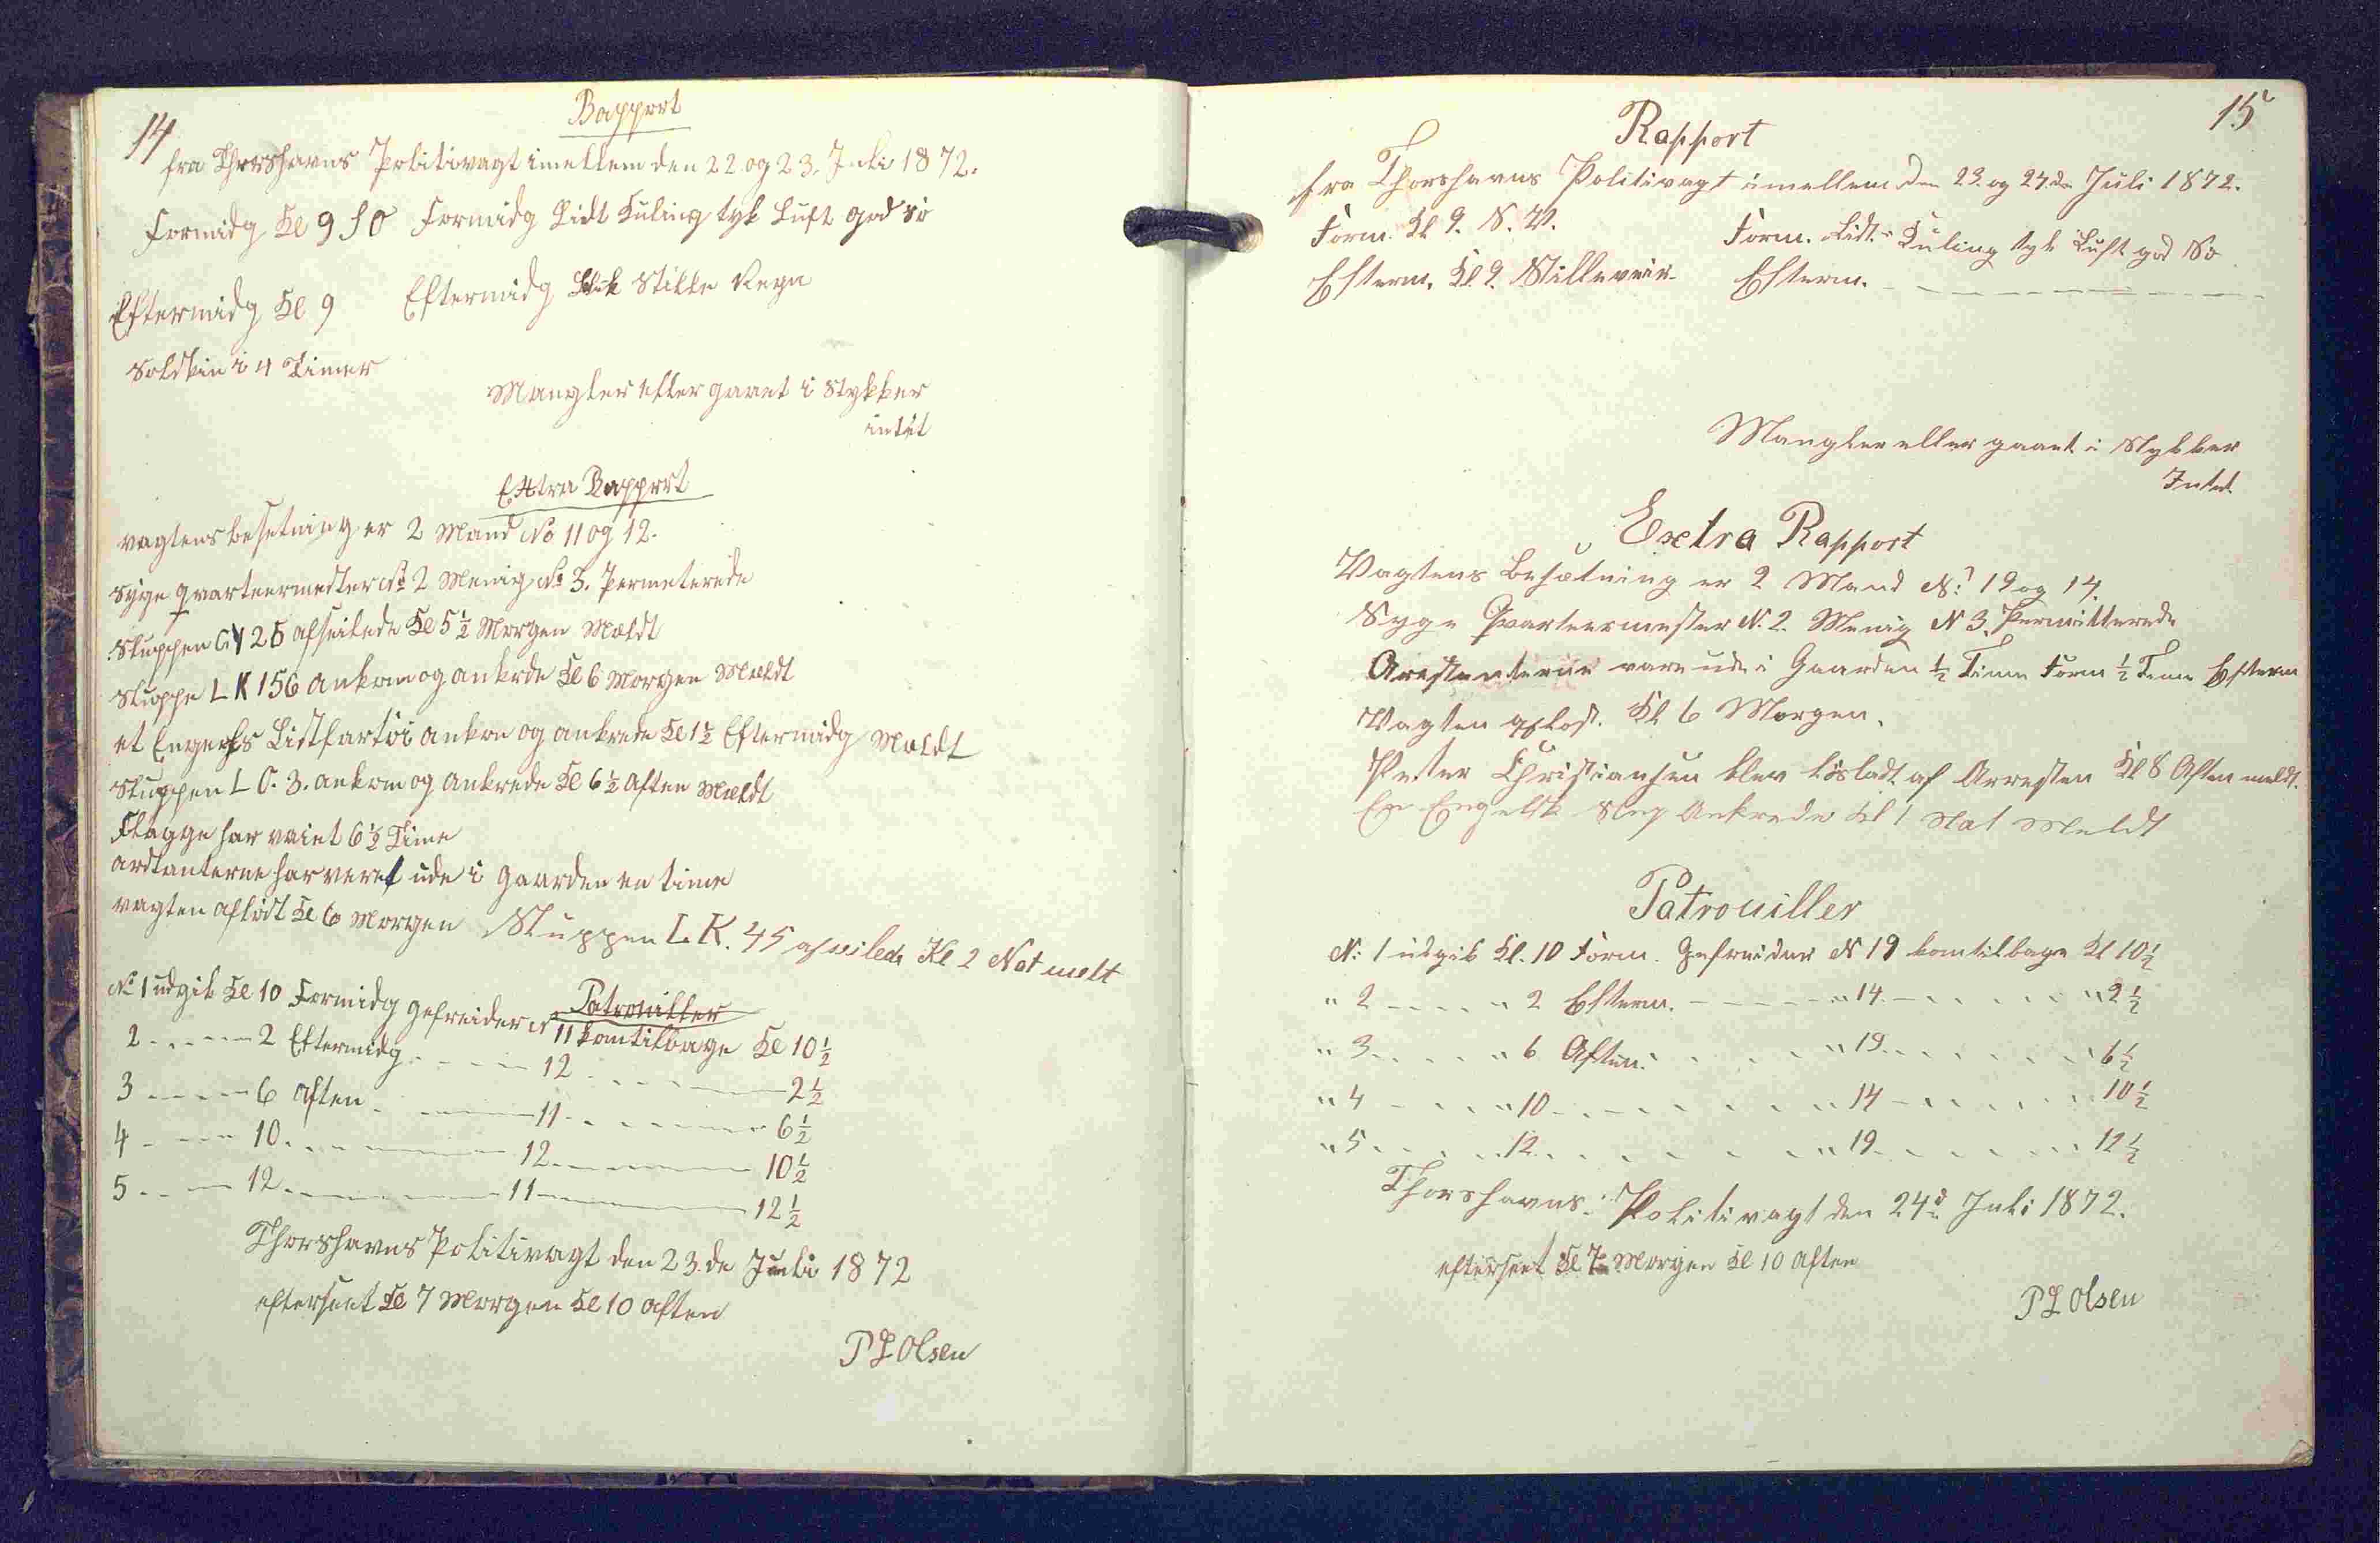 14
Rapport
fra Thorshavns Politivagt imellem den 22 og 23. Juli 1872.
Formidg Kl 9 SO Formidg Lidt Kuling tyk Luft god Sø
Eftermidg Kl 9 Eftermidg Blik Stille Regn
Solskin i 4 Timer
Mangler eller gaaet i Stykker
intet
Extra Rapport
vagtens besetning er 2 Mand No 11 og 12.
Syge qvarteermester No 2 Menig No 3. Permeterede
Sluppen GY 25 afseilede Kl 5½ Morgen Mældt
Sluppe LK 156 ankom og ankrde Kl 6 Morgen Mældt
et Listfartöi ankom og ankrede Kl 1½ Eftermidg Mældt
Sluppen L O. 3. ankom og ankrede Kl 6½ Aften Mældt
Flagge har vaiet 6½ Time
arstanterne har veret ude i gaarden en time
vagten afløst Kl 6 Morgen Sluppen L K. 45 afseilede Kl 2 Nat melt
Patrouiller
No 1 udgik Kl 10 Formidg gefreider No 11 komtilbage Kl 10½
2 - - - - 2 Eftermidg - - - - 12 - - - - 2½
3 - - - - 6 aften - - - - 11 - - - - 6½
4 - - - - 10 - - - - 12 - - - - 10½
5 - - - - 12 - - - - 11 - - - - 12½
Thorshavns Politivagt den 23.de Juli 1872
efterseet Kl 7 Morgen Kl 10 aften
P L Olsen
15
Rapport
fra Thorshavns Politivagt imellem den 23. og 24.de Juli 1872.
Form. Kl 9. N. V. Form. Lidt Kuling tyk Luft god Sø
Efterm. Kl 9. Stilleveir Efterm. - - - - - -
Mangler eller gaaet i Stykker
Intet.
Extra Rapport
Vagtens Besætning er 2 Mand N: 19 og 14.
Syge Qvarteermester N. 2. Menig N 3. Permitterede
Arestanterne vare ude i Gaarden ½ Time Form ½ Time Efterm
Vagten afløst. Kl 6 Morgen.
Peter Christiansen blev løsladt af Arresten Kl 8 Aften meldt.
En Engelsk Slup Ankrede Kl 1 Nat Meldt
Patrouiller
N: 1 udgik Kl. 10 Form. Gefreider N 19 komtilbage Kl 10½
" 2 - - - - " 2 Efterm. - - - - " 14. - - - - " 2½
" 3 - - - - " 6 Aften. - - - - " 19. - - - - " 6½
" 4 - - - - " 10 - - - - " 14 - - - - 10½
" 5 - - - - 12. - - - - " 19. - - - - 12½
Thorshavns Politivagt den 24de Juli 1872.
efterseet Kl 7 Morgen Kl 10 aften
P L Olsen